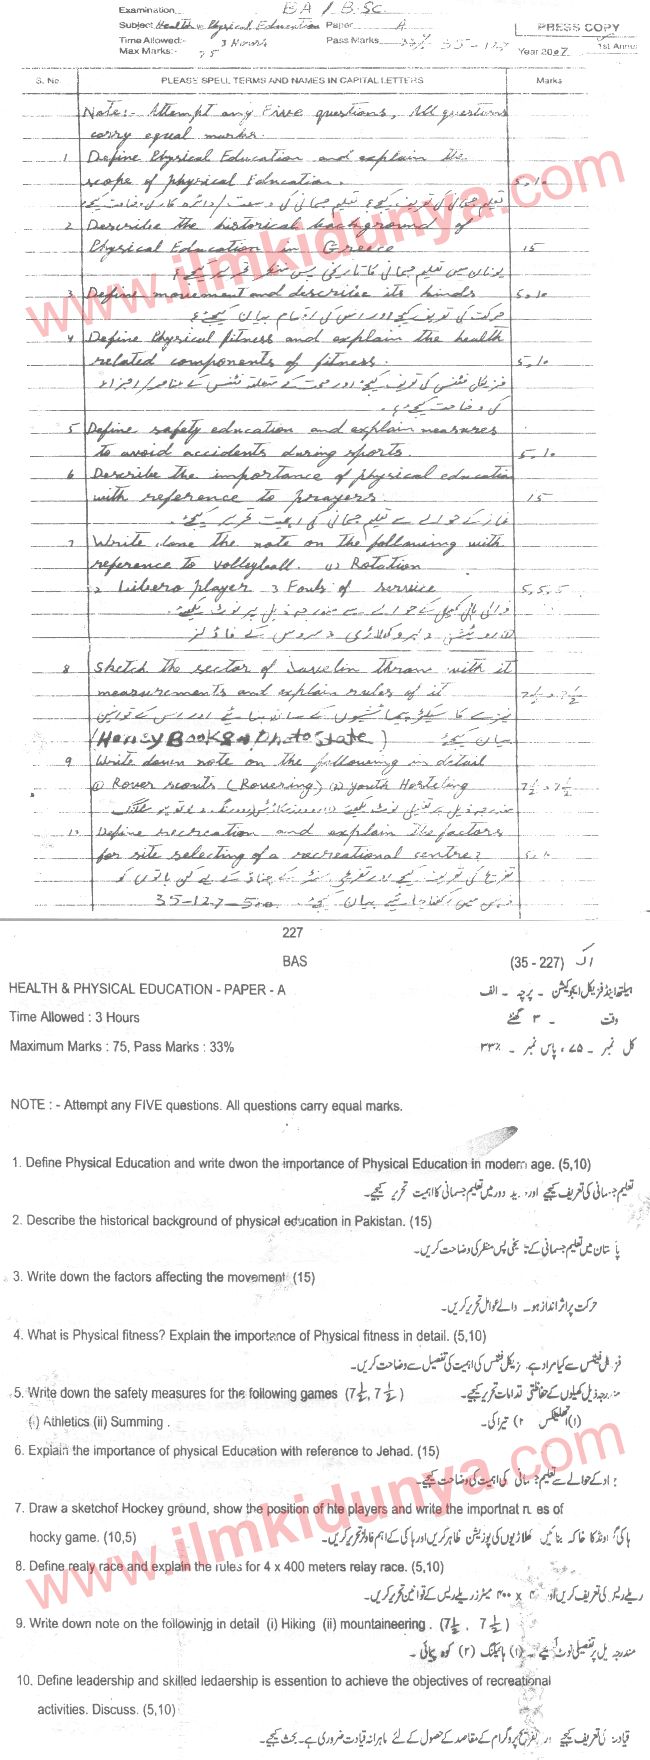 Examination BA / B.Sc
Subject Health & Physical Education Paper A
PRESS COPY
Time Allowed:- 3 Hours Pass Marks 33% 35-127
Max Marks:- 75
Year 2007 1st Annual
S. No. PLEASE SPELL TERMS AND NAMES IN CAPITAL LETTERS Marks
Note:- Attempt any Five questions, All questions
carry equal marks.
1 Define Physical Education and explain the
scope of physical Education. 5,10
2 Describe the historical background of
Physical Education in Greece 15
یونان میں تعلیم جسمانی کا تاریخی پس منظر تحریر کیجئے؟
3 Define movement and describe its kinds 5,10
حرکت کی تعریف کیجئے اور اس کی اقسام بیان کیجئے؟
4 Define Physical fitness and explain the health
related components of fitness. 5,10
کی وضاحت کیجئے؟
5 Define safety education and explain measures
to avoid accidents during sports. 5,10
6 Describe the importance of physical education
with reference to prayers. 15
نماز کے حوالے سے تعلیم جسمانی کی اہمیت تحریر کیجئے۔
7 Write done the note on the following with
reference to volleyball. (1) Rotation
2 Libero player 3 Fouls of service 5,5,5
والی بال کھیل کے حوالے سے مندرجہ ذیل پر نوٹ لکھیے۔
8 Sketch the sector of Javelin throw with it
measurements and explain rules of it 7½,7½
بیان کیجئے
(Honey Books & Photo State)
9 Write down note on the following in detail
① Rover scouts (Rovering) ② youth Hosteling 7½,7½
10 Define recreation and explain the factors
for site selecting of a recreational centre? 5,10
ذہن میں رکھنا چاہیے بیان کیجئے۔ 35-127-500
227
BAS (35 - 227) اک
HEALTH & PHYSICAL EDUCATION - PAPER - A ہیلتھ اینڈ فزیکل ایجوکیشن - پرچہ - الف
Time Allowed : 3 Hours وقت - ۳ گھنٹے
Maximum Marks : 75, Pass Marks : 33% کل نمبر - ۷۵، پاس نمبر - ۳۳٪
NOTE : - Attempt any FIVE questions. All questions carry equal marks.
1. Define Physical Education and write dwon the importance of Physical Education in modern age. (5,10)
تعلیم جسمانی کی تعریف کیجیے اور ید دور میں تعلیم جسمانی کا اہمیت تحریر کیجیے۔
2. Describe the historical background of physical education in Pakistan. (15)
پا ستان میں تعلیم جسمانی کے تا یخی پس منظر کی وضاحت کریں۔
3. Write down the factors affecting the movement (15)
حرکت پر اثر انداز ہو والے عوامل تحریر کریں۔
4. What is Physical fitness? Explain the importance of Physical fitness in detail. (5,10)
فز کل فٹنس سے کیا مراد ہے، زیکل فٹنس کی اہمیت کی تفصیل سے وضاحت کریں۔
5. Write down the safety measures for the following games (7½, 7½) مندرجہ ذیل کھیلوں کے حفاظتی قدامات تحریر کیجیے۔
(i) Athletics (ii) Summing . (۱) اتھلیٹکس (۲) تیراکی۔
6. Explain the importance of physical Education with reference to Jehad. (15)
ہاد کے حوالے سے تعلیم جسمانی کی اہمیت کی وضاحت کیجیے۔
7. Draw a sketchof Hockey ground, show the position of hte players and write the importnat r es of
hocky game. (10,5) ہاکی گراونڈ کا خاکہ بنائیں کھلاڑیوں کی پوزیشن ظاہر کریں اور ہاکی کے اہم فاولز تحریر کریں۔
8. Define realy race and explain the rules for 4 x 400 meters relay race. (5,10)
ریلے ریس کی تعریف کریں اور ۴ x ۴۰۰ میٹر ریلے ریس کے قوانین تحریر کریں۔
9. Write down note on the followinjg in detail (i) Hiking (ii) mountaineering . (7½ , 7½)
مندرجہ ذیل پر تفصیلی نوٹ لکھیے۔ (۱) ہائیکنگ (۲) کوہ پیمائی۔
10. Define leadership and skilled ledaership is essention to achieve the objectives of recreational
activities. Discuss. (5,10)
قیادت کی تعریف کیجیے اور تفریح پروگرام کے مقاصد کے حصول کے لئے ماہرانہ قیادت ضروری ہے۔ بحث کیجیے۔
www.ilmkidunya.com
www.ilmkidunya.com